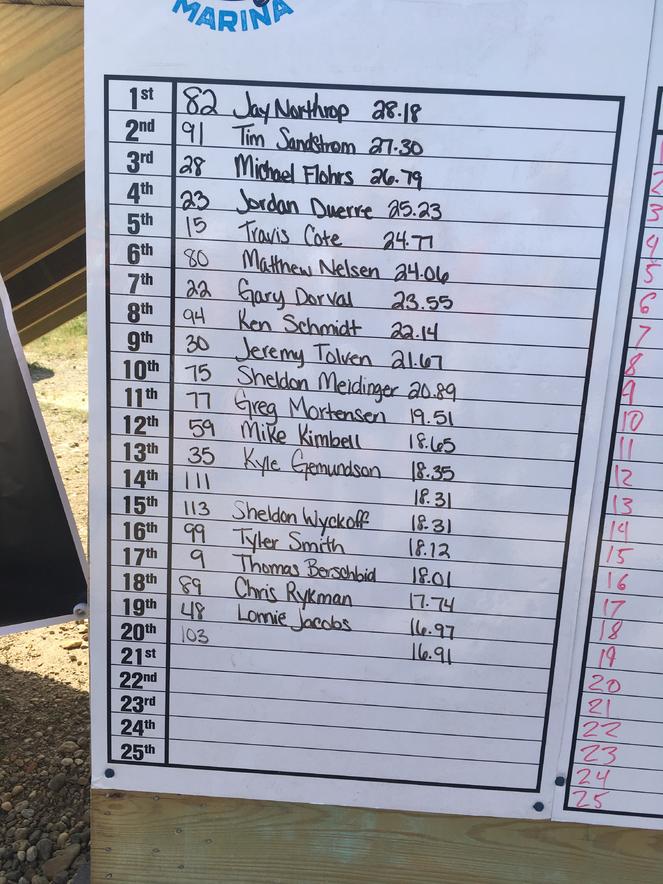 MARINA
1st 82 Jay Northrop 28.18
2nd 91 Tim Sandstrom 27.30
3rd 28 Michael Flohrs 26.79
4th 23 Jordan Duerre 25.23
5th 15 Travis Cote 24.77
6th 80 Matthew Nelsen 24.06
7th 22 Gary Dorval 23.55
8th 94 Ken Schmidt 22.14
9th 30 Jeremy Tolven 21.67
10th 75 Sheldon Meidinger 20.89
11th 77 Greg Mortensen 19.51
12th 59 Mike Kimbell 18.65
13th 35 Kyle Gemundson 18.35
14th 111 18.31
15th 113 Sheldon Wyckoff 18.31
16th 99 Tyler Smith 18.12
17th 9 Thomas Berschbid 18.01
18th 89 Chris Rykman 17.74
19th 48 Lonnie Jacobs 16.97
20th 103 16.91
21st
22nd
23rd
24th
25th
1
2
3
4
5
6
7
8
9
10
11
12
13
14
15
16
17
18
19
20
21
22
23
24
25